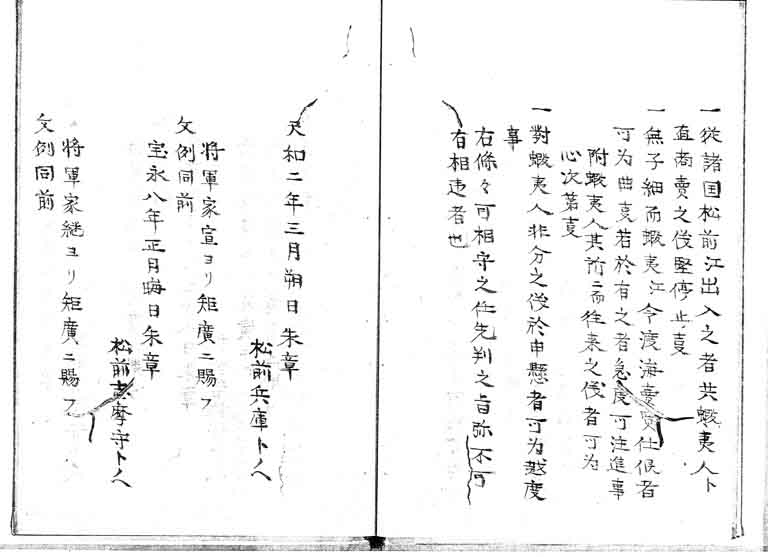 一從諸国松前江出入之者共蝦夷人ト
直商賣之儀堅停止夏
一無子細而蝦夷江令渡海賣買仕候者
可為曲夏若於有之者急度可注進事
附蝦夷人其所ニ而往来之儀者可為
心次第夏
一對蝦夷人非分之儀於申懸者可為越度
事
右條々可相守之任先判之旨弥不可
有相违者也
天和二年三月朔日朱章
松前兵庫トノヘ
将軍家宣ヨリ矩廣ニ賜フ
文例同前
宝永八年正月晦日朱章
松前志摩守トノヘ
将軍家継ヨリ矩廣ニ賜フ
文例同前